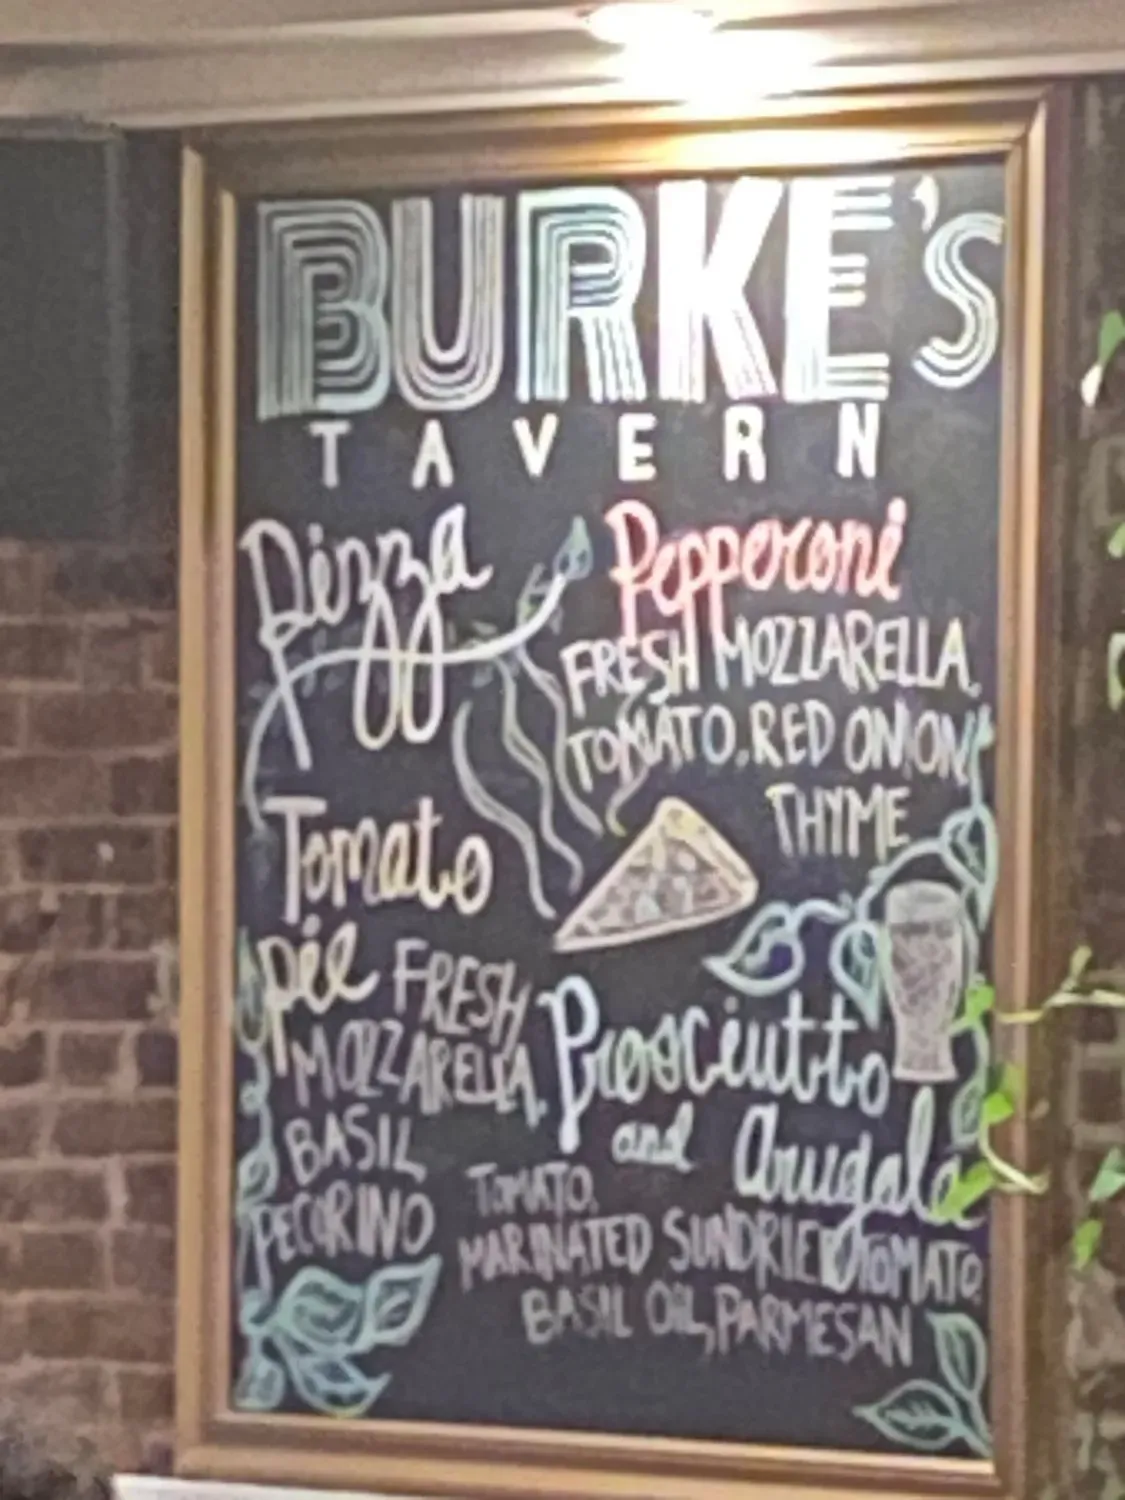 BURKE'S
TAVERN
Pizza
Pepperoni
FRESH MOZZARELLA,
TOMATO, RED ONION,
THYME
Tomato
pie FRESH
MOZZARELLA,
BASIL
PECORINO
Prosciutto
and Arugala
TOMATO,
MARINATED SUNDRIED TOMATO,
BASIL OIL, PARMESAN